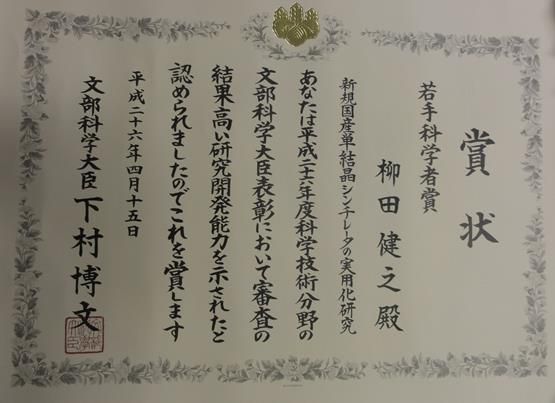 賞状
若手科学者賞
柳田健之殿
新規国産単結晶シンチレータの実用化研究
あなたは平成二十六年度科学技術分野の
文部科学大臣表彰において審査の
結果高い研究開発能力を示されたと
認められましたのでこれを賞します
平成二十六年四月十五日
文部科学大臣 下村博文